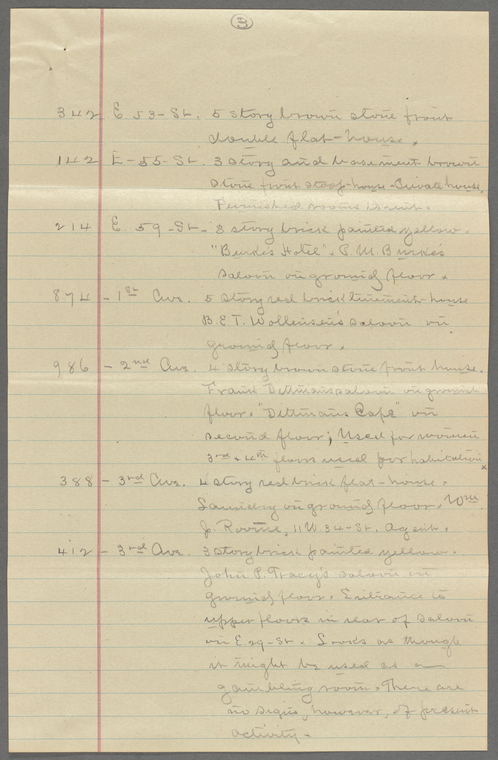 3
342 E 53-St. 5 story brown stone front
double flat-house.
142 E-55-St. 3 story and basement brown
stone front stoop-house-Private house,
Furnished rooms to rent.
214 E 59-St- 3 story brick painted yellow.
"Burke's Hotel". P. M. Burke's
saloon on ground floor.
874 - 1st Ave. 5 story red brick tenement-house
B.E.T. saloon on
ground floor.
986 - 2nd Ave. 4 story brown stone front house.
Frank Dittmans saloon on ground
floor. "Dittmans Cafe" on
second floor; Used for women
3rd & 4th floors used for habitation
388 - 3rd Ave. 4 story red brick flat-house.
Laundry on ground floor. Wm.
J. 11 W. 34-St. Agent.
412 - 3rd Ave. 3 story brick painted yellow.
John P. Tracey's saloon on
ground floor. Entrance to
upper floors in rear of saloon
on E 29-St. Looks as though
it might be used as a
gambling room. There are
no signs, however, of present
activity.